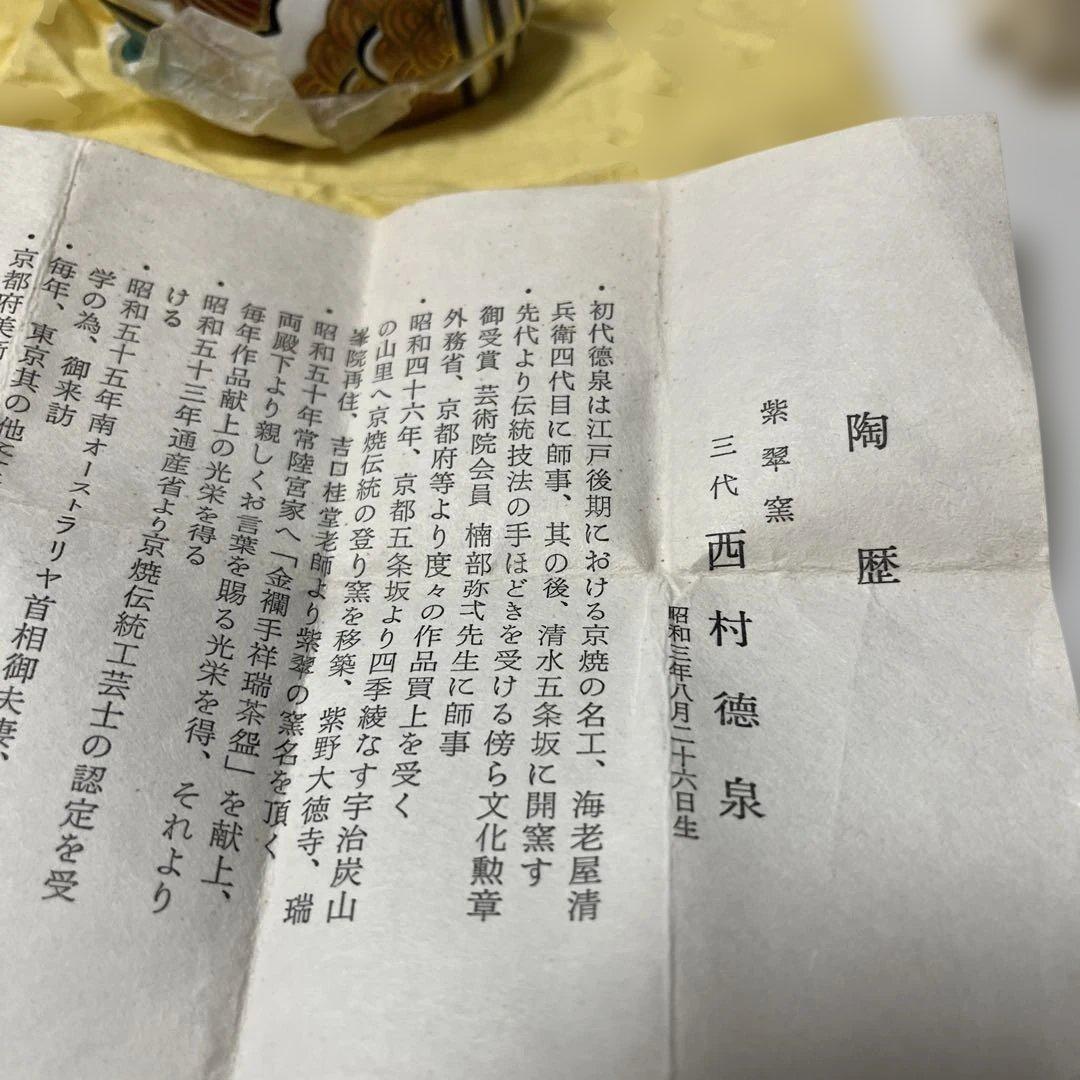 陶歴
紫翠窯
三代 西村德泉
昭和三年八月二十六日生
・初代德泉は江戸後期における京焼の名工、海老屋清
兵衛四代目に師事、其の後、清水五条坂に開窯す
・先代より伝統技法の手ほどきを受ける傍ら文化勲章
御受賞 芸術院会員 楠部弥弌先生に師事
外務省、京都府等より度々の作品買上を受く
・昭和四十六年、京都五条坂より四季綾なす宇治炭山
の山里へ京焼伝統の登り窯を移築、紫野大徳寺、瑞
峯院再住、吉口桂堂老師より紫翠の窯名を頂く
・昭和五十年常陸宮家へ「金襴手祥瑞茶盌」を献上、
両殿下より親しくお言葉を賜る光栄を得、それより
毎年作品献上の光栄を得る
・昭和五十三年通産省より京焼伝統工芸士の認定を受
ける
・昭和五十五年南オーストラリヤ首相御夫妻、
学の為、御来訪
・毎年、東京其の他
・京都府美術